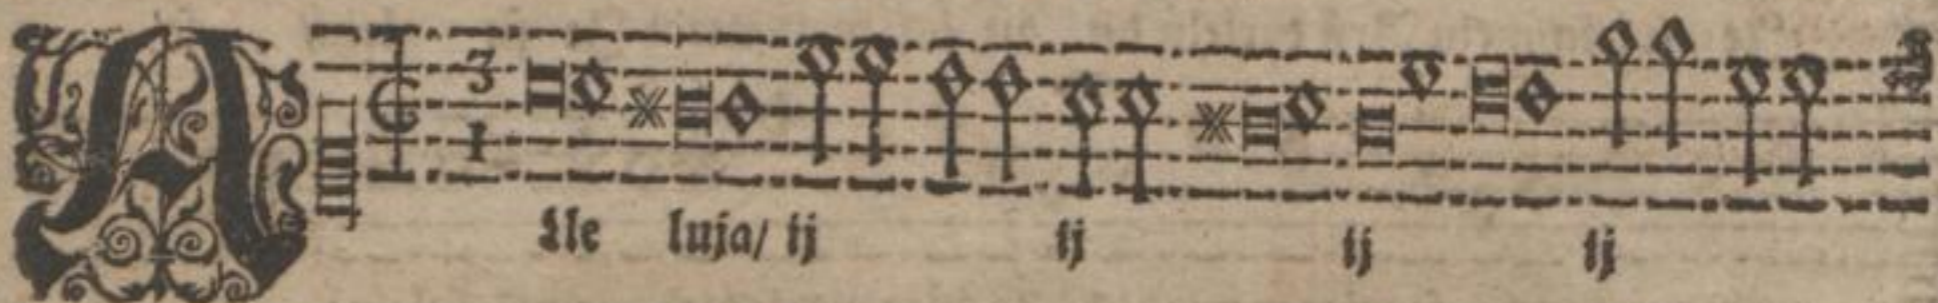 A
3
1
Lle luja/ ij ij ij ij